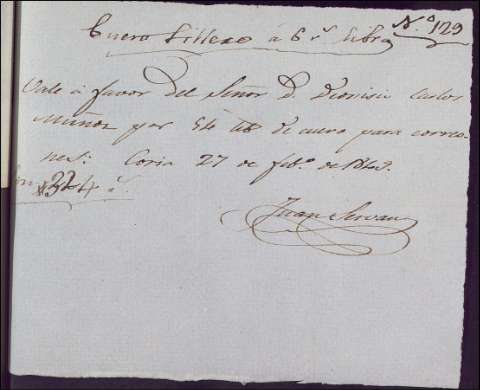 Nº 129
Cuero Sillero á 6 rs libra
Vale á favor del Señor D. Dionisio Carlos
Muñoz por 54 lb de cuero para correo-
nes: Coria 27 de febº de 1843.
324 rs
Juan Servan